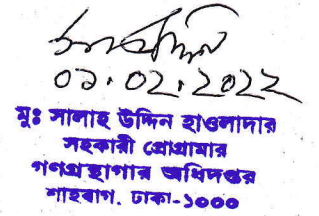 ০১.০২.২০২২
মুঃ সালাহ উদ্দিন হাওলাদার
সহকারী প্রোগ্রামার
গণগ্রন্থাগার অধিদপ্তর
শাহবাগ, ঢাকা-১০০০